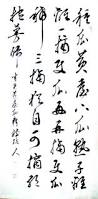 種瓜黄臺下瓜熟子離
離一摘使瓜好再摘使瓜
稀三摘猶自可摘絕
抱蔓歸